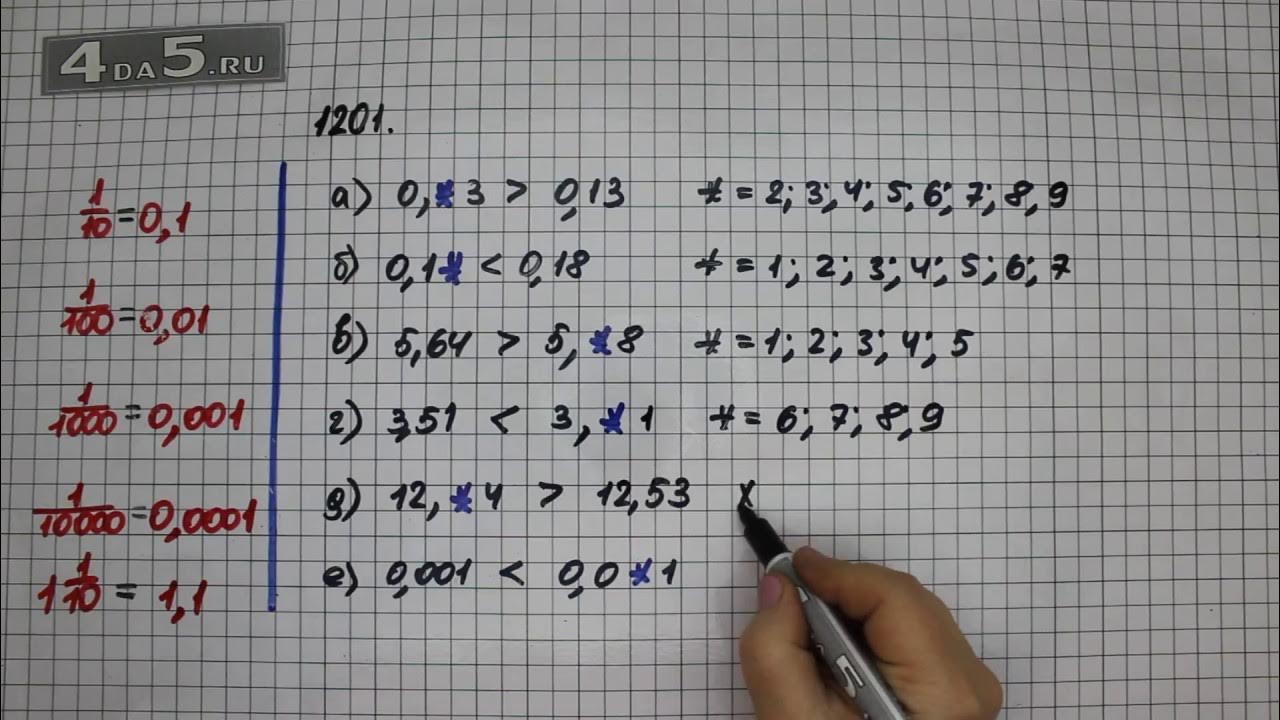 4DA5.RU
1201.
1/10 = 0,1
1/100 = 0,01
1/1000 = 0,001
1/10000 = 0,0001
1 1/10 = 1,1
а) 0,*3 > 0,13 * = 2; 3; 4; 5; 6; 7; 8, 9
б) 0,1* < 0,18 * = 1; 2; 3; 4; 5; 6; 7
в) 5,64 > 5,*8 * = 1; 2; 3; 4; 5
г) 3,51 < 3,*1 * = 6; 7; 8, 9
д) 12,*4 > 12,53 х
е) 0,001 < 0,0*1
5